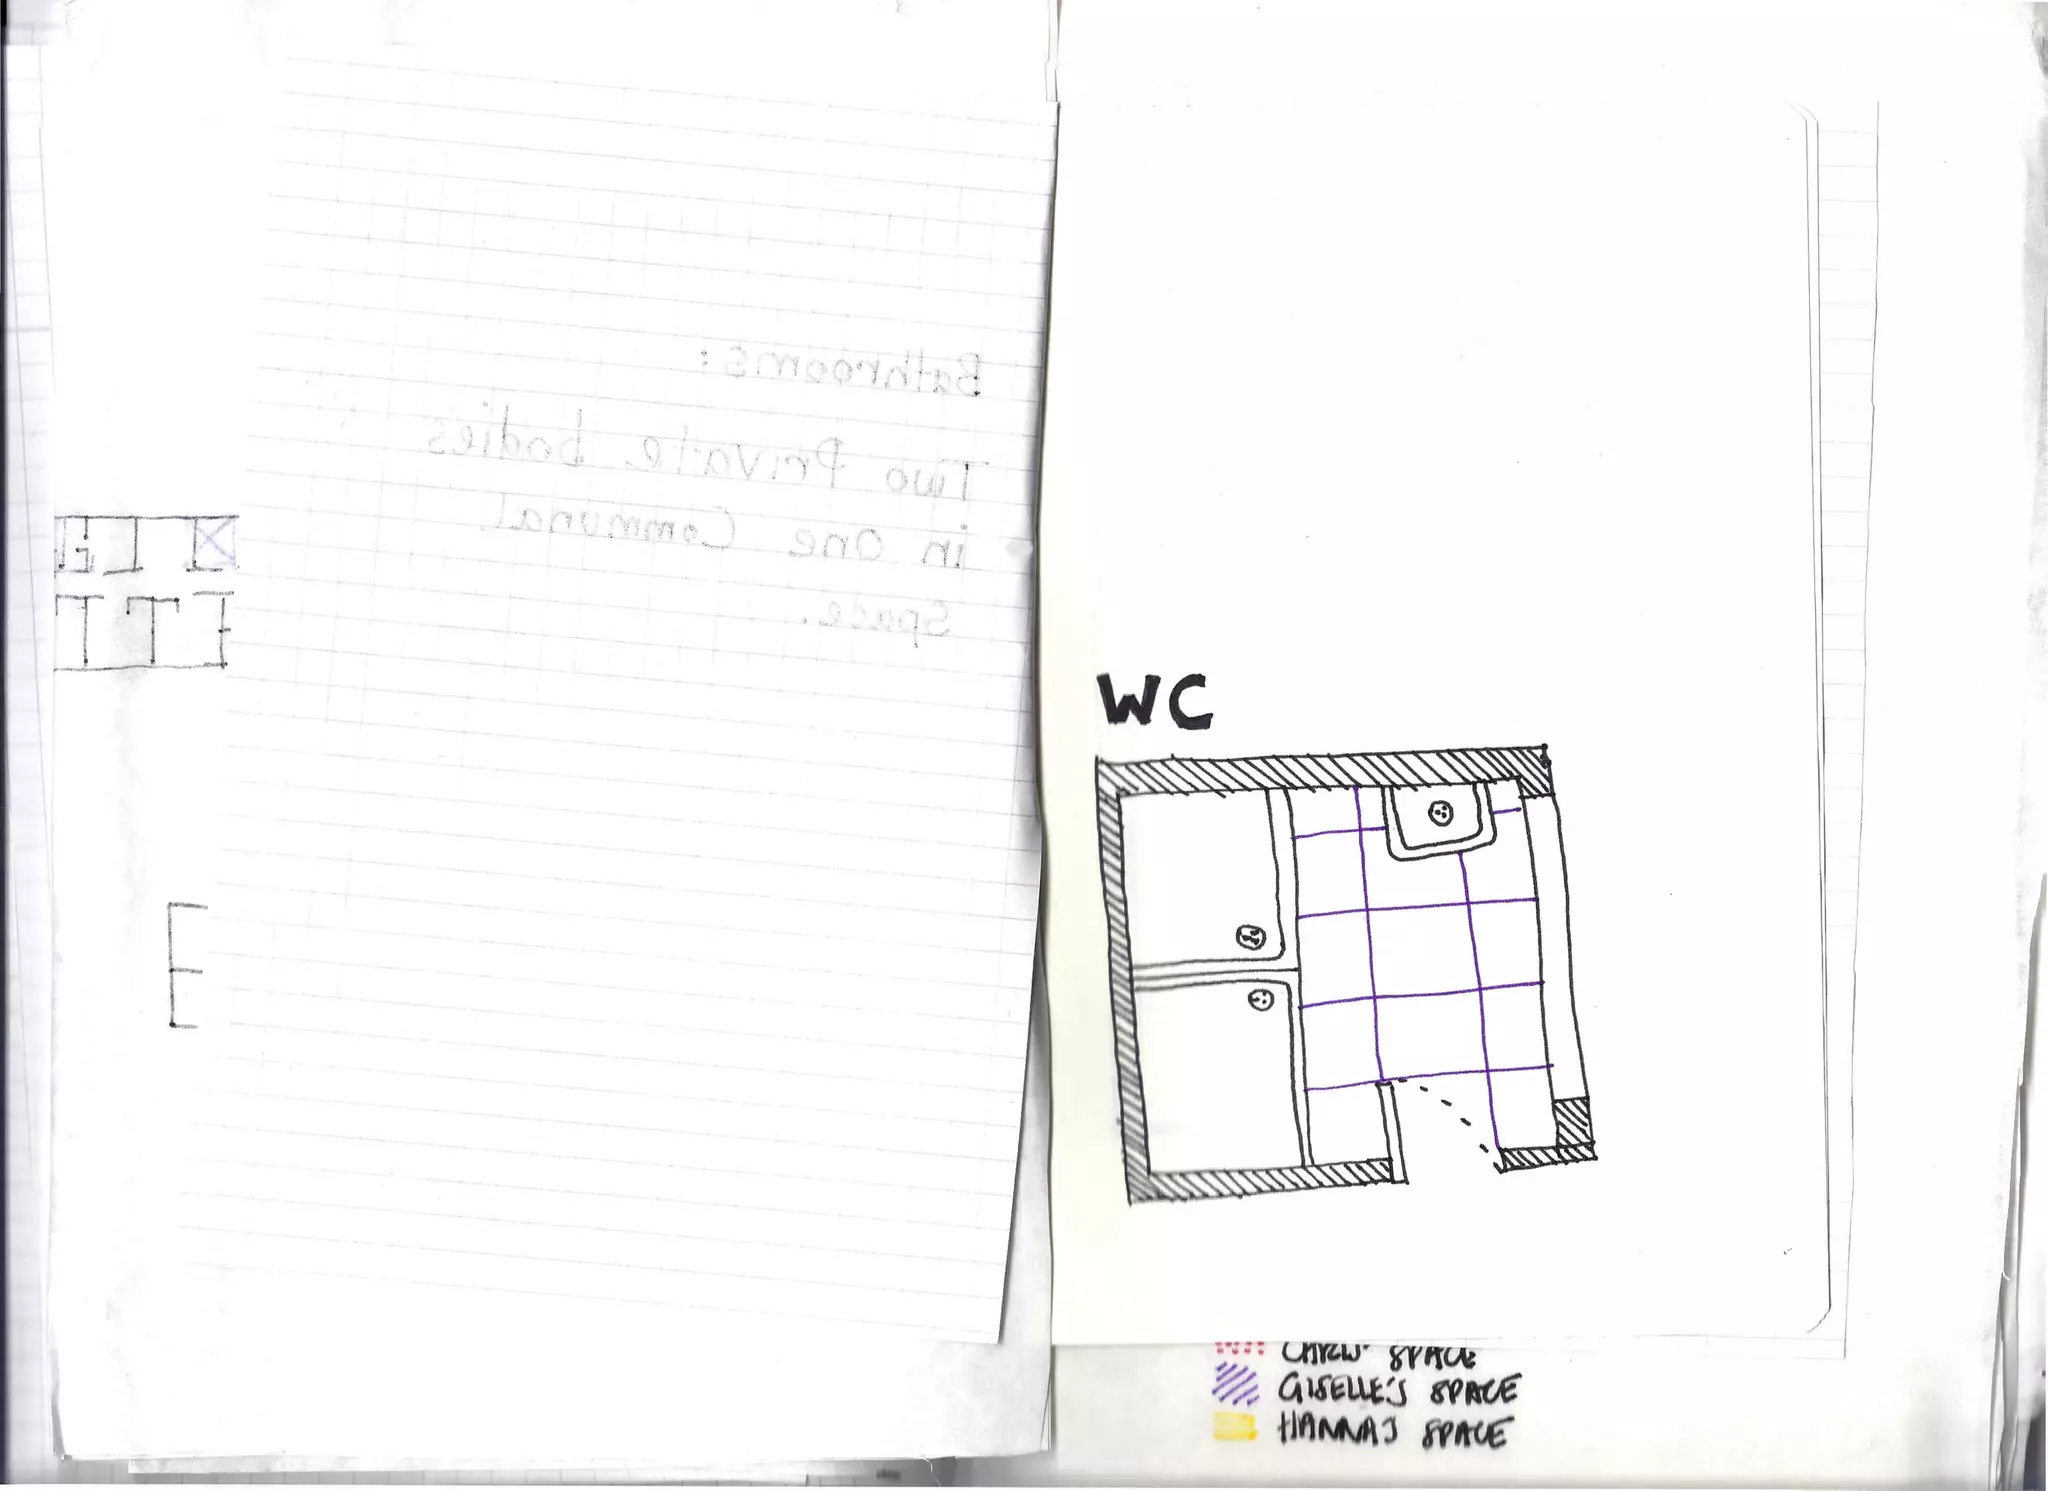 Bathrooms:
Two Private bodies
in One Communal
Space.
WC
SPACE
GISELLE'S SPACE
HANNA'S SPACE